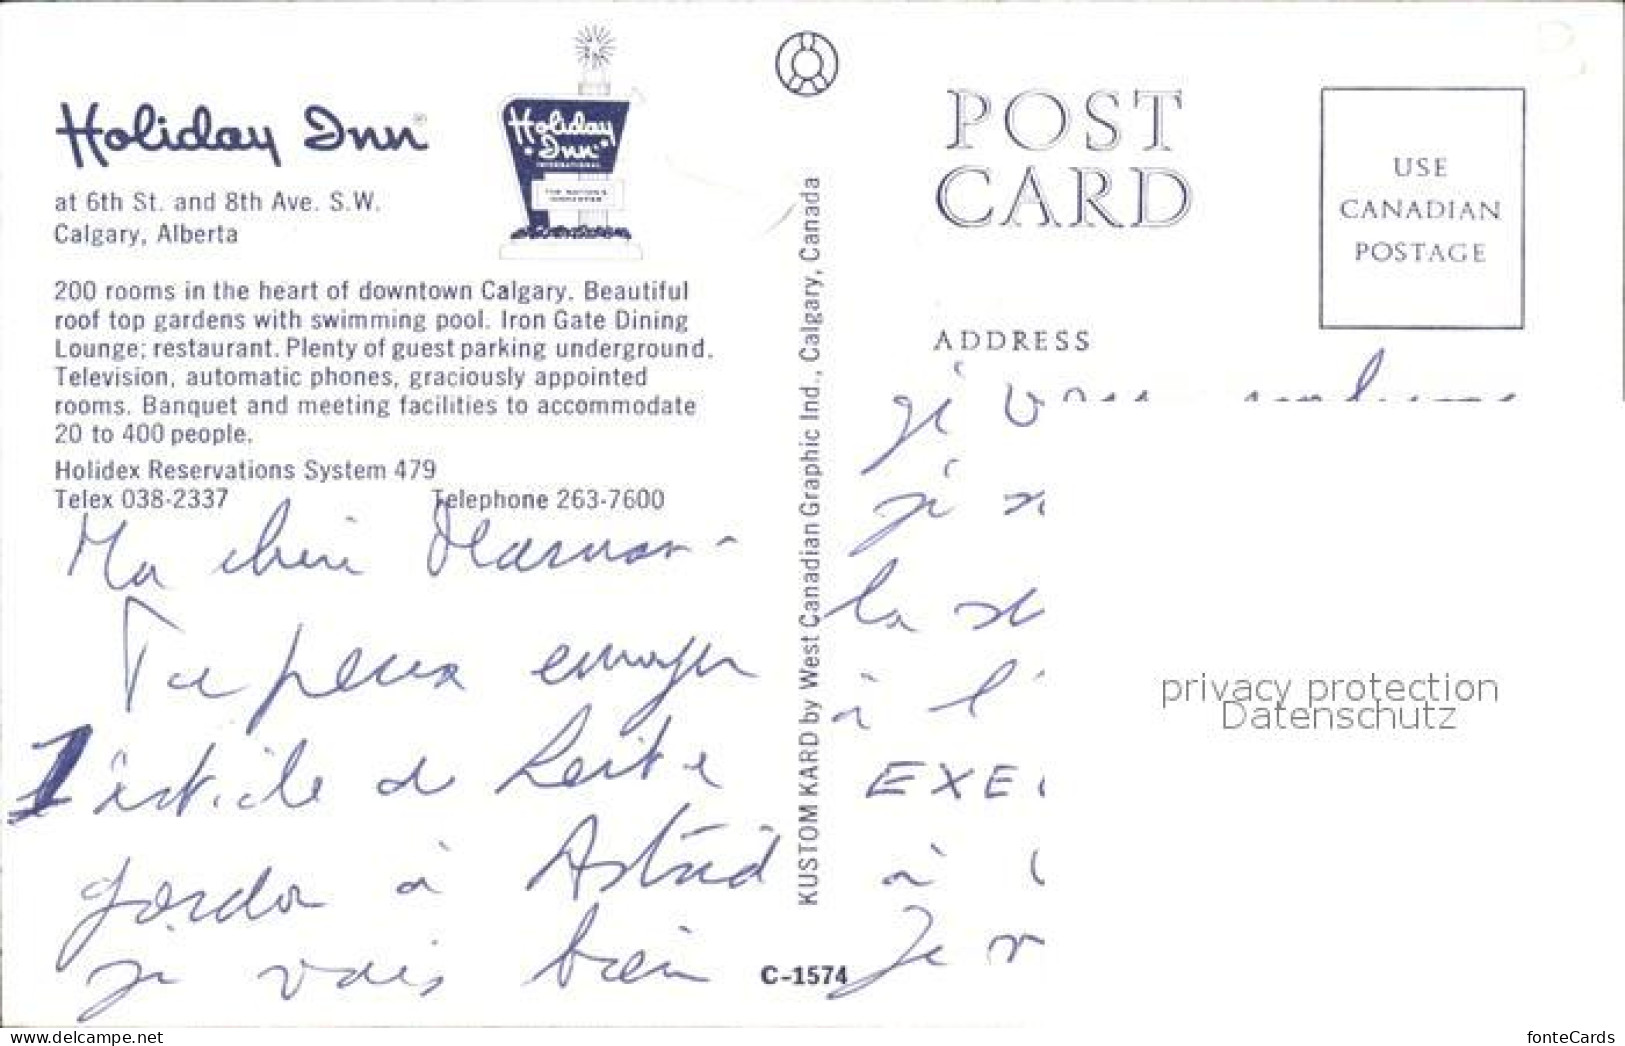 Holiday Inn®
at 6th St. and 8th Ave. S.W.
Calgary, Alberta
Holiday
Inn
INTERNATIONAL
THE NATION'S
INNKEEPER
200 rooms in the heart of downtown Calgary. Beautiful
roof top gardens with swimming pool. Iron Gate Dining
Lounge; restaurant. Plenty of guest parking underground.
Television, automatic phones, graciously appointed
rooms. Banquet and meeting facilities to accommodate
20 to 400 people.
Holidex Reservations System 479
Telex 038-2337 Telephone 263-7600
Ma cheri Maman
Tu peux envoyer
1 article de
à Astrid
je vais bien
KUSTOM KARD by West Canadian Graphic Ind., Calgary, Canada
C-1574
POST
CARD
USE
CANADIAN
POSTAGE
ADDRESS
je
je
la
à l'
EXE
à
Je
privacy protection
Datenschutz
www.delcampe.net
fonteCards